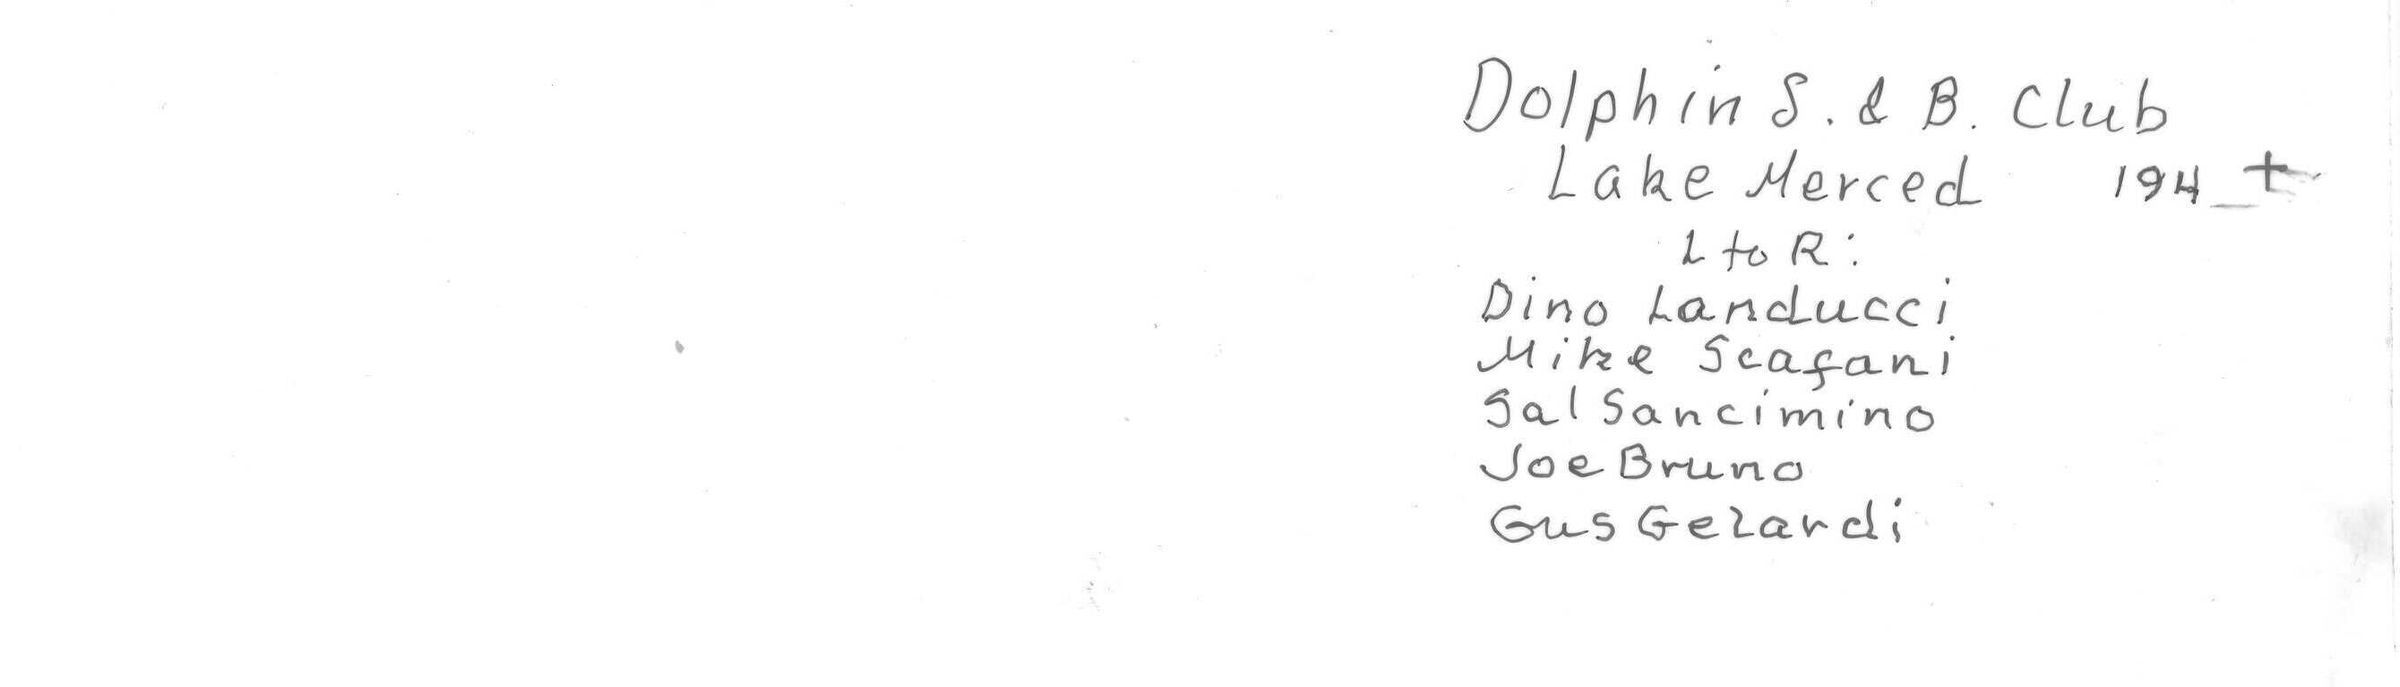 Dolphin S. & B. Club
Lake Merced 194_+
L to R:
Dino Landucci
Mike Scafani
Sal Sancimino
Joe Bruno
Gus Gelardi